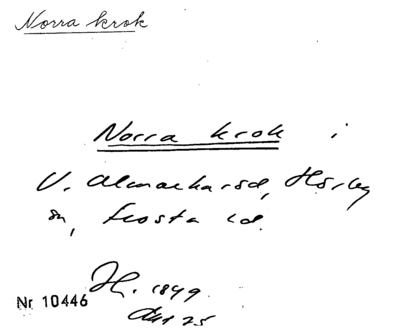 Norra krok
Norra krok i
V. Almaharöd, Hörby
sn, Frosta hd.
H. 1849
Nr 10446